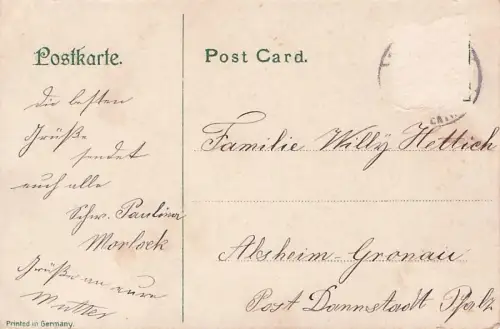 Postkarte.
Post Card.
die besten
Grüße
sendet
euch alle
Schw. Paulina
Morlock
Grüße an eure
Mutter
Familie Willy Hettich
Alsheim-Gronau
Post Dannstadt Pfalz
Printed in Germany.